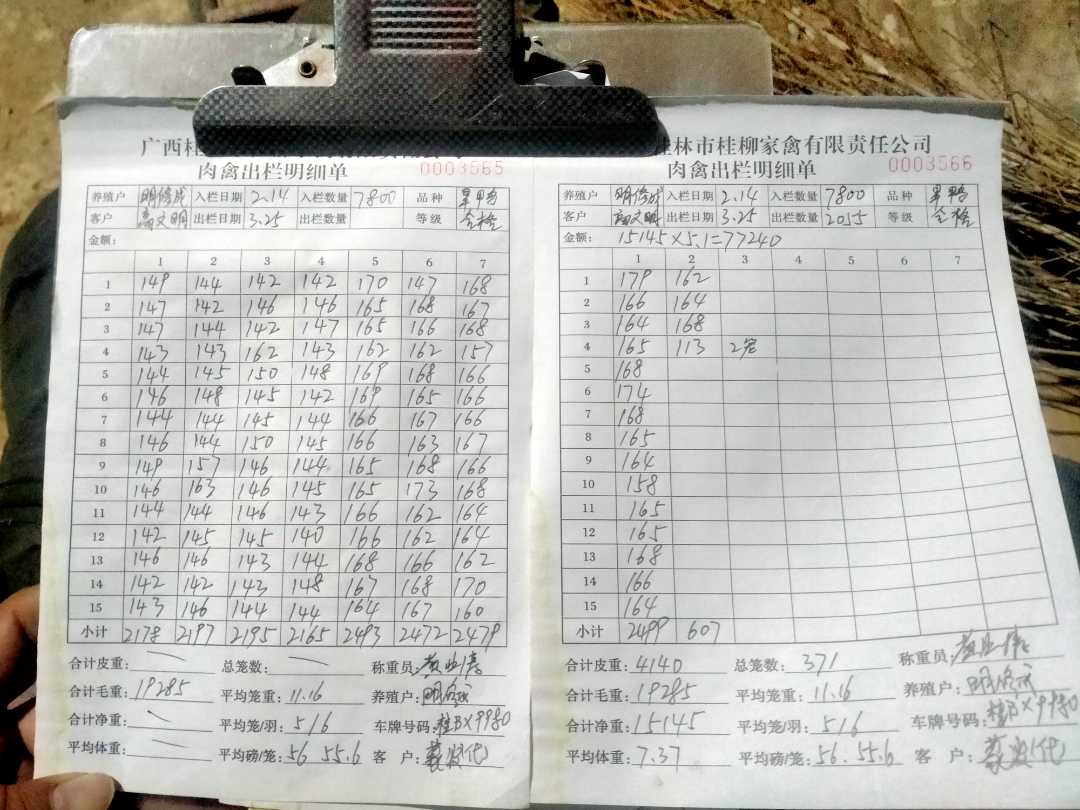 广西桂
肉禽出栏明细单 0003565
养殖户 明修成 入栏日期 2.14 入栏数量 7800 品种
客户 高文明 出栏日期 3.25 出栏数量 等级 合格
金额:
1 2 3 4 5 6 7
1 149 144 142 142 170 147 168
2 147 142 146 146 165 168 167
3 147 144 142 147 165 166 168
4 143 143 162 143 162 162 157
5 144 145 150 148 169 168 166
6 146 148 145 142 169 165 166
7 144 144 145 144 166 167 166
8 146 144 150 145 166 163 167
9 149 157 146 144 165 168 166
10 146 163 146 145 165 173 168
11 144 144 146 143 166 162 164
12 142 145 145 140 166 162 164
13 146 146 143 144 168 166 162
14 142 142 143 148 167 168 170
15 143 146 144 144 164 167 160
小计 2178 2197 2195 2165 2493 2472 2479
合计皮重: 总笼数: 称重员:
合计毛重: 19285 平均笼重: 11.16 养殖户:
合计净重: 平均笼/羽: 5/6 车牌号码: 桂BX9980
平均体重: 平均磅/笼: 56 55.6 客户:
桂林市桂柳家禽有限责任公司
肉禽出栏明细单 0003566
养殖户 明修成 入栏日期 2.14 入栏数量 7800 品种
客户 高文明 出栏日期 3.25 出栏数量 2055 等级 合格
金额: 15145×5.1=77240
1 2 3 4 5 6 7
1 179 162
2 166 164
3 164 168
4 165 113 2笼
5 168
6 174
7 168
8 165
9 164
10 158
11 165
12 165
13 168
14 166
15 164
小计 2499 607
合计皮重: 4140 总笼数: 371 称重员:
合计毛重: 19285 平均笼重: 11.16 养殖户:
合计净重: 15145 平均笼/羽: 5/6 车牌号码: 桂BX9980
平均体重: 7.37 平均磅/笼: 56.55.6 客户: